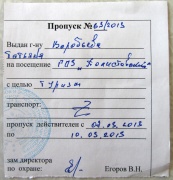 Пропуск № 63/2013
Выдан г-ну Воробьева
Татьяна
на посещение ГПЗ „Холистовский"
с целью Туризм
транспорт: Z
пропуск действителен с 02.03.2013
по 10.03.2013
зам директора
по охране: Егоров В.Н.